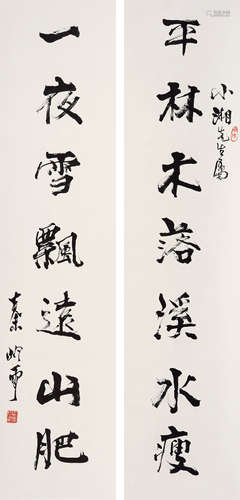 平林木落溪水瘦
小湘先生属
一夜雪飘远山肥
秦岭雲